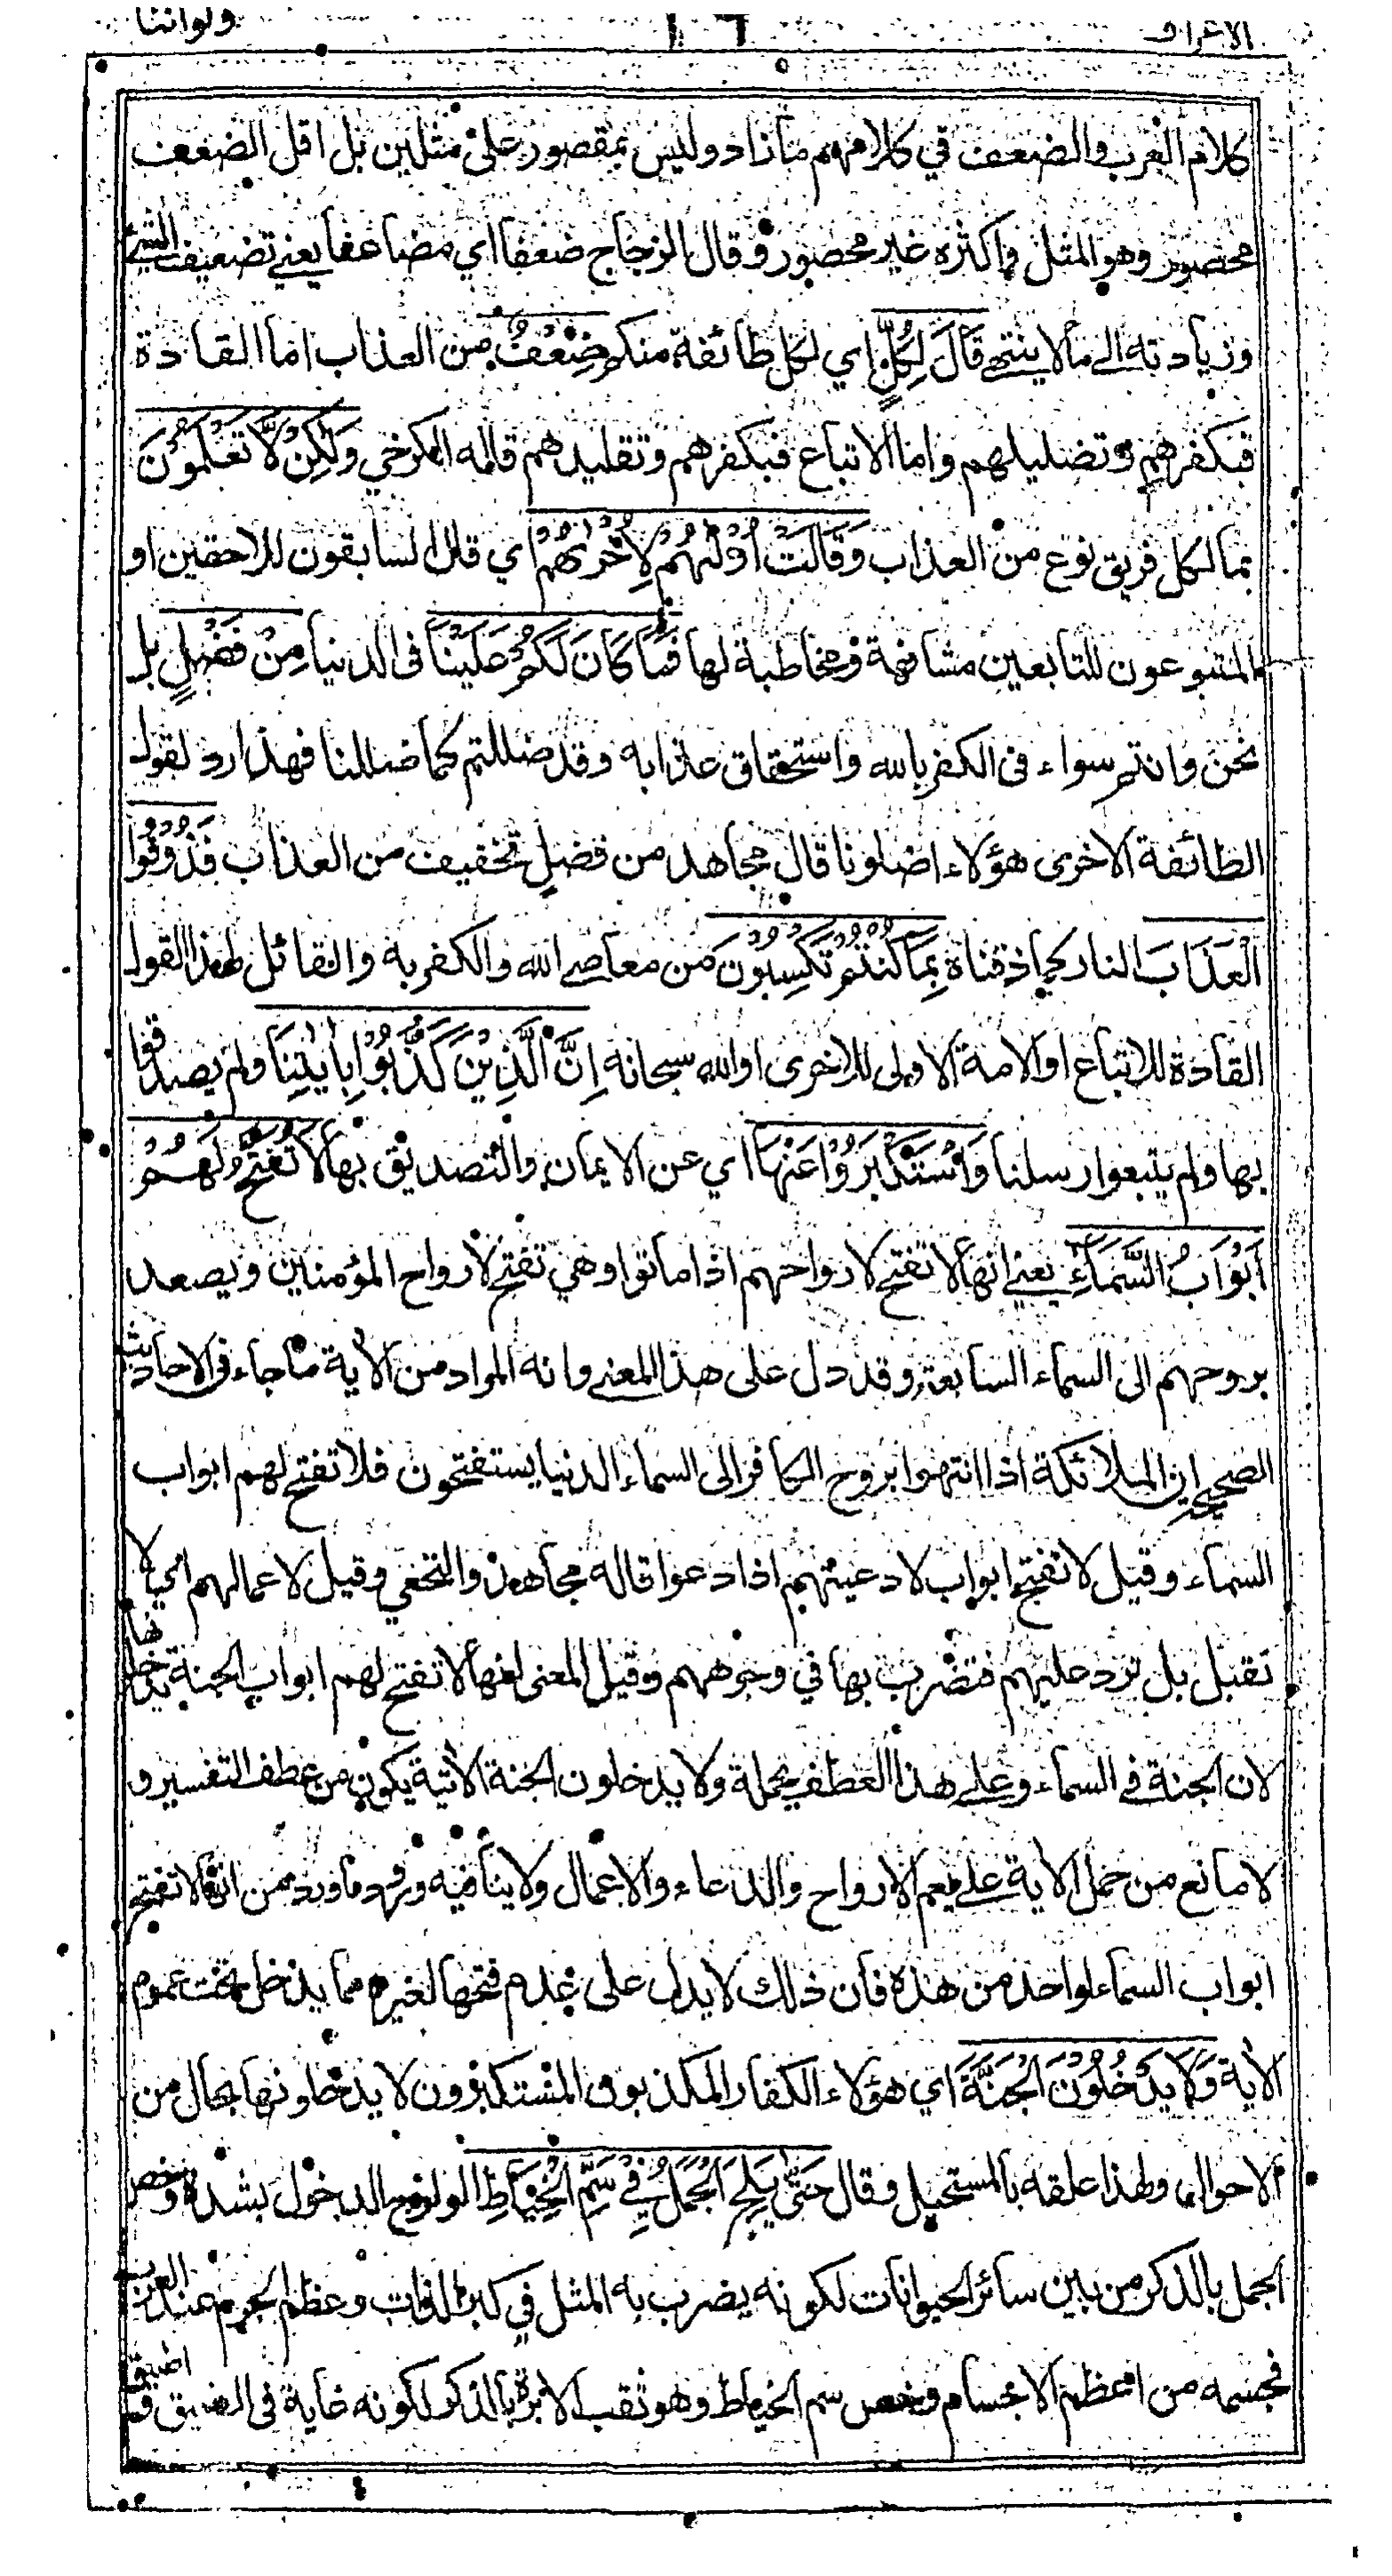 ولواننا ١٦ الاعراف
كلام العرب والضعف في كلامهم ما زاد وليس بمقصور على مثلين بل اقل الضعف
محصور وهو المثل واكثره غير محصور وقال الزجاج ضعفا اي مضاعفا يعني تضعيف الشيء
وزيادته الى ما لا ينتهي قَالَ لِكُلٍّ اي لكل طائفة منكم ضِعْفٌ من العذاب اما القادة
فبكفرهم وتضليلهم واما الاتباع فبكفرهم وتقليدهم قاله الكرخي وَلَكِنْ لَّا تَعْلَمُوْنَ
بما لكل فريق نوع من العذاب وَقَالَتْ اُوْلٰىهُمْ لِاُخْرٰىهُمْ اي قال السابقون للاحقين او
المتبوعون للتابعين مشافهة ومخاطبة لها فَمَا كَانَ لَكُمْ عَلَيْنَا فى الدنيا مِنْ فَضْلٍ بل
نحن وانتم سواء فى الكفر بالله واستحقاق عذابه وقد ضللتم كما ضللنا فهذا رد لقول
الطائفة الاخرى هؤلاء اضلونا قال مجاهد من فضلٍ تخفيف من العذاب فَذُوْقُوا
الْعَذَابَ النار كما ذقناه بِمَا كُنْتُمْ تَكْسِبُوْنَ من معاصي الله والكفر به والقائل لهذا القول
القادة للاتباع او الامة الاولى للاخرى او الله سبحانه اِنَّ الَّذِيْنَ كَذَّبُوْا بِاٰيٰتِنَا ولم يصدقوا
بها ولم يتبعوا رسلنا وَاسْتَكْبَرُوْا عَنْهَا اي عن الايمان والتصديق بها لَا تُفَتَّحُ لَهُمْ
اَبْوَابُ السَّمَآءِ يعني انها لا تفتح لارواحهم اذا ماتوا وهي تفتح لارواح المؤمنين ويصعد
بروحهم الى السماء السابعة وقد دل على هذا المعنى وانه المراد من الاية ما جاء فى الاحاديث
الصحيحة ان الملائكة اذا انتهوا بروح الكافر الى السماء الدنيا يستفتحون فلا تفتح لهم ابواب
السماء وقيل لا تفتح ابواب لادعيتهم اذا دعوا قاله مجاهد والنخعي وقيل لاعمالهم اي لا
تقبل بل ترد عليهم فتضرب بها في وجوههم وقيل المعنى انها لا تفتح لهم ابواب الجنة يدخلونها
لان الجنة فى السماء وعلى هذا العطف بجملة ولا يدخلون الجنة الاتية يكون من عطف التفسير و
لا مانع من حمل الاية على ما يعم الارواح والدعاء والاعمال ولا ينافيه ورود ما ورد من انها لا تفتح
ابواب السماء لواحد من هذه فان ذلك لا يدل على عدم فتحها لغيره مما يدخل تحت عموم
الاية وَلَا يَدْخُلُوْنَ الْجَنَّةَ اي هؤلاء الكفار المكذبون المستكبرون لا يدخلونها بحال من
الاحوال ولهذا علقه بالمستحيل فقال حَتّٰى يَلِجَ الْجَمَلُ فِيْ سَمِّ الْخِيَاطِ الولوج الدخول بشدة وخص
الجمل بالذكر من بين سائر الحيوانات لكونه يضرب به المثل في كبر الذات وعظم الجرم عند العرب
فجسمه من اعظم الاجسام وخص سم الخياط وهو ثقب الابرة بالذكر لكونه غاية فى الضيق